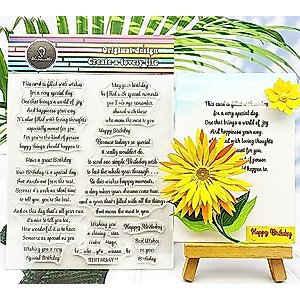 Original design
Create a lovely life
This card is filled with wishes
for a very special day:
One that brings a world of joy
And happiness your way.
It's also filled with loving thoughts
especially meant for you
For you're the kind of person
happy things should happen to.
Have a great Birthday
Your Birthday is a special day
that should stand out from the rest
Because it's such an ideal time
to tell you, you're the best.
And on this day that's all your own
It's nice to tell you too,
How wonderful it is to know
Someone as special as you
Wishing you a very
Special Birthday!
May your birthday
be filled with special moments
for you to remember
shared with those
who mean the most to you
Happy Birthday
Because today's so special
it really wouldn't do
to send one simple Birthday wish
So like the things that mean the most,
a day when your dreams come true.
and a year that's filled with all the love
that's always felt for you.
Happy Birthday
Best Wishes
to you
BIRTHDAY!!
This card is filled with wishes
for a very special day:
One that brings a world of joy
And happiness your way.
filled with loving thoughts
meant for you
kind of person
happen to.
Happy Birthday